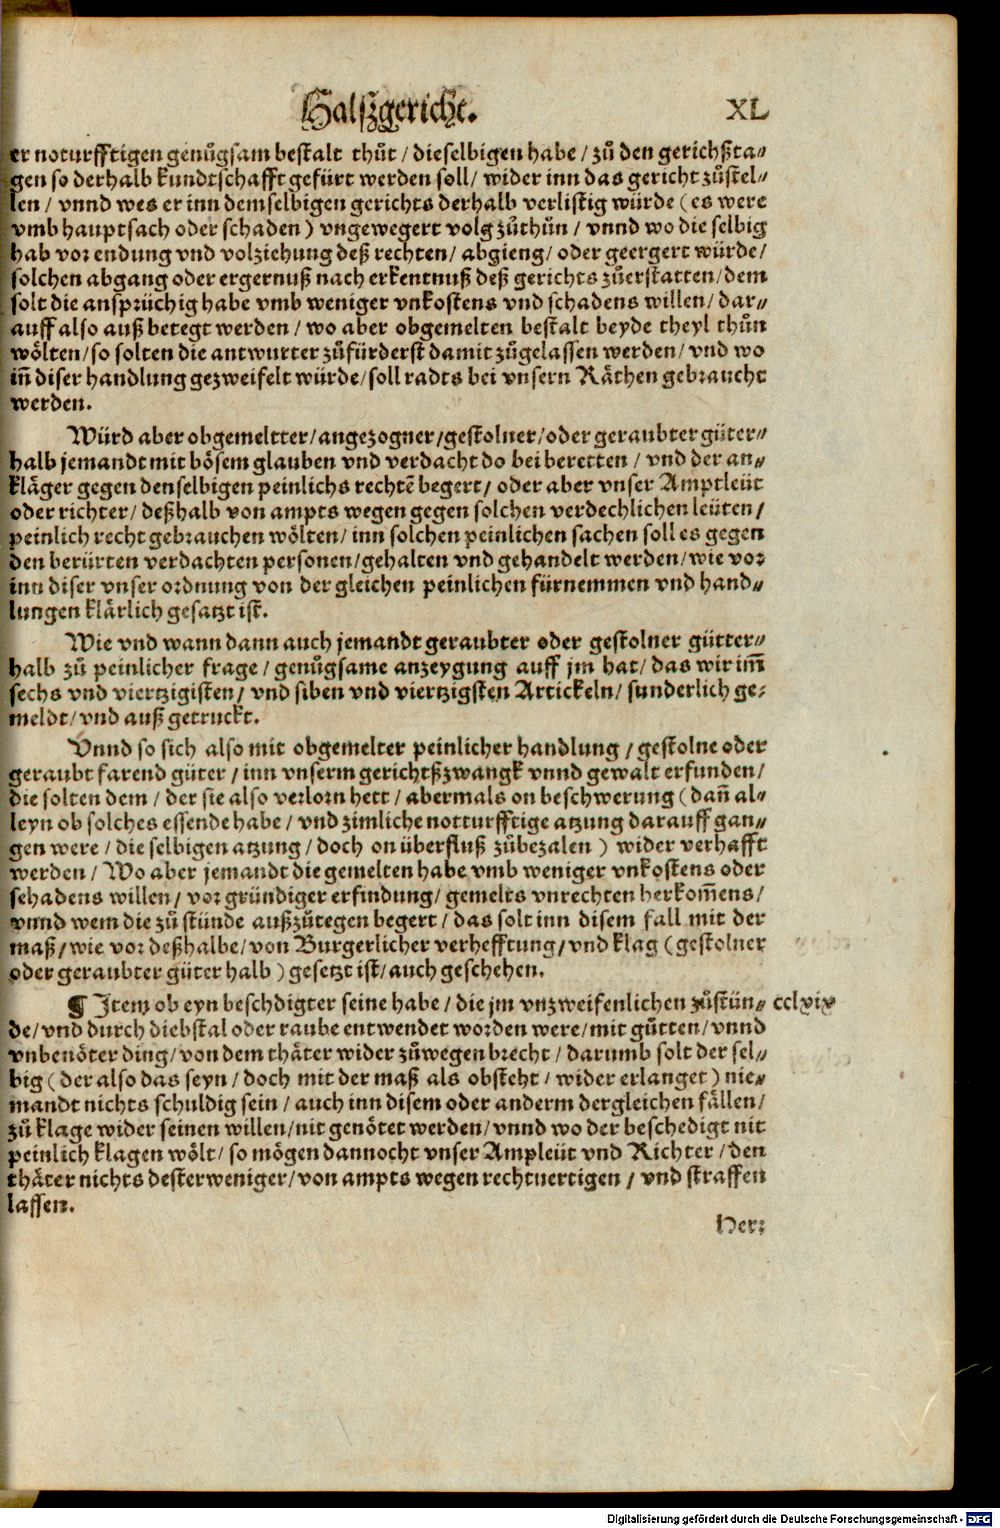 Halßgericht. XL
er noturfftigen genůgsam bestalt thůt / dieselbigen habe / zů den gerichßta⸗
gen so derhalb kundtschafft gefürt werden soll / wider inn das gericht zůstel⸗
len / vnnd wes er inn demselbigen gerichts derhalb verlistig würde (es were
vmb hauptsach oder schaden) vngewegert volg zůthůn / vnnd wo die selbig
hab vor endung vnd volziehung deß rechten / abgieng / oder geergert würde /
solchen abgang oder ergernuß nach erkentnuß deß gerichts zůerstatten / dem
solt die ansprüchig habe vmb weniger vnkostens vnd schadens willen / dar⸗
auff also auß betegt werden / wo aber obgemelten bestalt beyde theyl thůn
wölten / so solten die antwurter zůfürderst damit zůgelassen werden / vnd wo
iñ diser handlung gezweifelt würde / soll radts bei vnsern Räthen gebraucht
werden.
Würd aber obgemeltter / angezogner / gestolner / oder geraubter güter⸗
halb jemandt mit bösem glauben vnd verdacht do bei beretten / vnd der an⸗
kläger gegen denselbigen peinlichs rechtẽ begert / oder aber vnser Amptleüt
oder richter / deßhalb von ampts wegen gegen solchen verdechlichen leüten /
peinlich recht gebrauchen wölten / inn solchen peinlichen sachen soll es gegen
den berürten verdachten personen / gehalten vnd gehandelt werden / wie vor
inn diser vnser ordnung von der gleichen peinlichen fürnemmen vnd hand⸗
lungen klärlich gesatzt ist.
Wie vnd wann dann auch jemandt geraubter oder gestolner gütter⸗
halb zů peinlicher frage / genůgsame anzeygung auff jm hat / das wir im̃
sechs vnd viertzigisten / vnd siben vnd viertzigsten Artickeln / sunderlich ge⸗
meldt / vnd auß getruckt.
Vnnd so sich also mit obgemelter peinlicher handlung / gestolne oder
geraubt farend güter / inn vnserm gerichtßzwangk vnnd gewalt erfunden /
die solten dem / der sie also verlorn hett / abermals on beschwerung (dañ al⸗
leyn ob solches essende habe / vnd zimliche notturfftige atzung darauff gan⸗
gen were / die selbigen atzung / doch on überfluß zůbezalen) wider verhafft
werden / Wo aber jemandt die gemelten habe vmb weniger vnkostens oder
schadens willen / vor gründiger erfindung / gemelts vnrechten herkom̃ens /
vnnd wem die zů stünde außzůtegen begert / das solt inn disem fall mit der
maß / wie vor deßhalbe / von Burgerlicher verhefftung / vnd klag (gestolner
oder geraubter güter halb) gesetzt ist / auch geschehen.
¶ Item ob eyn beschdigter seine habe / die jm vnzweifenlichen zůstün⸗ cclxix
de / vnd durch diebstal oder raube entwendet worden were / mit gůtten / vnnd
vnbenöter ding / von dem thäter wider zůwegen brecht / darumb solt der sel⸗
big (der also das seyn / doch mit der maß als obsteht / wider erlanget) nie⸗
mandt nichts schuldig sein / auch inn disem oder anderm dergleichen fällen /
zů klage wider seinen willen / nit genötet werden / vnnd wo der beschedigt nit
peinlich klagen wölt / so mögen dannocht vnser Ampleüt vnd Richter / den
thäter nichts desterweniger / von ampts wegen rechtuertigen / vnd straffen
lassen.
Her⸗
Digitalisierung gefördert durch die Deutsche Forschungsgemeinschaft - DFG